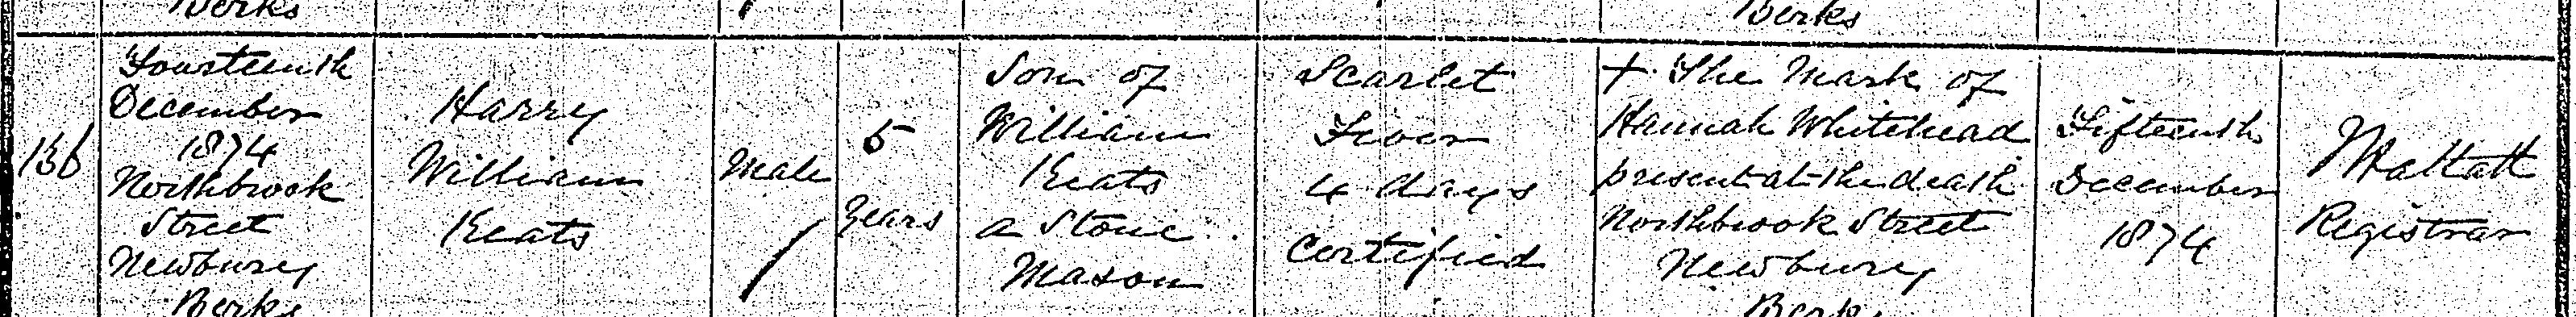 Berks
Berks
136
Fourteenth
December
1874
Northbrook
Street
Newbury
Berks
Harry
William
Keats
Male
5
Years
Son of
William
Keats
a Stone
Mason
Scarlet
Fever
4 days
Certified
+ The Mark of
Hannah Whitehead
present at the death
Northbrook Street
Newbury
Berks
Fifteenth
December
1874
Registrar